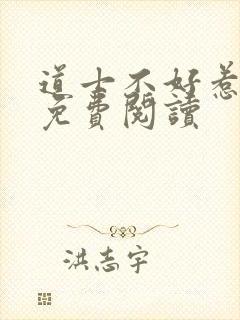 道士不好惹
免費閱讀
洪志宇